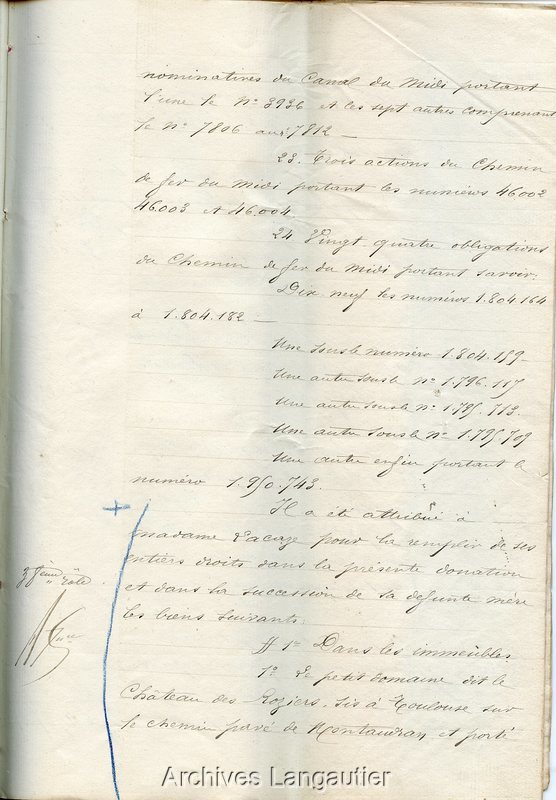 nominatives du Canal du Midi portant
l'une le N° 3936 et les sept autres comprenant
le N° 7806 au 7812 —
23. Trois actions du Chemin
de fer du Midi portant les numéros 46.002
46.003 et 46.004.
24 Vingt quatre obligations
du Chemin de fer du Midi portant savoir.
Dix neuf les numéros 1.804.164
à 1.804.182 —
Une sous le numéro 1.804.159 -
Une autre sous le N° 1.796.117
Une autre sous le N° 1.795.713.
Une autre sous le N° 1.795.709
Une autre enfin portant le
numéro 1.950.743.
Il a été attribué à
madame Lacaze pour la remplir de ses
entiers droits dans la présente donation
et dans la succession de sa défunte mère
les biens suivants.
3eme Rôle
§ 1° Dans les immeubles
1° Le petit domaine dit le
Château des Roziers, sis à Toulouse sur
le chemin pavé de Montaudran et porté
Archives Langautier